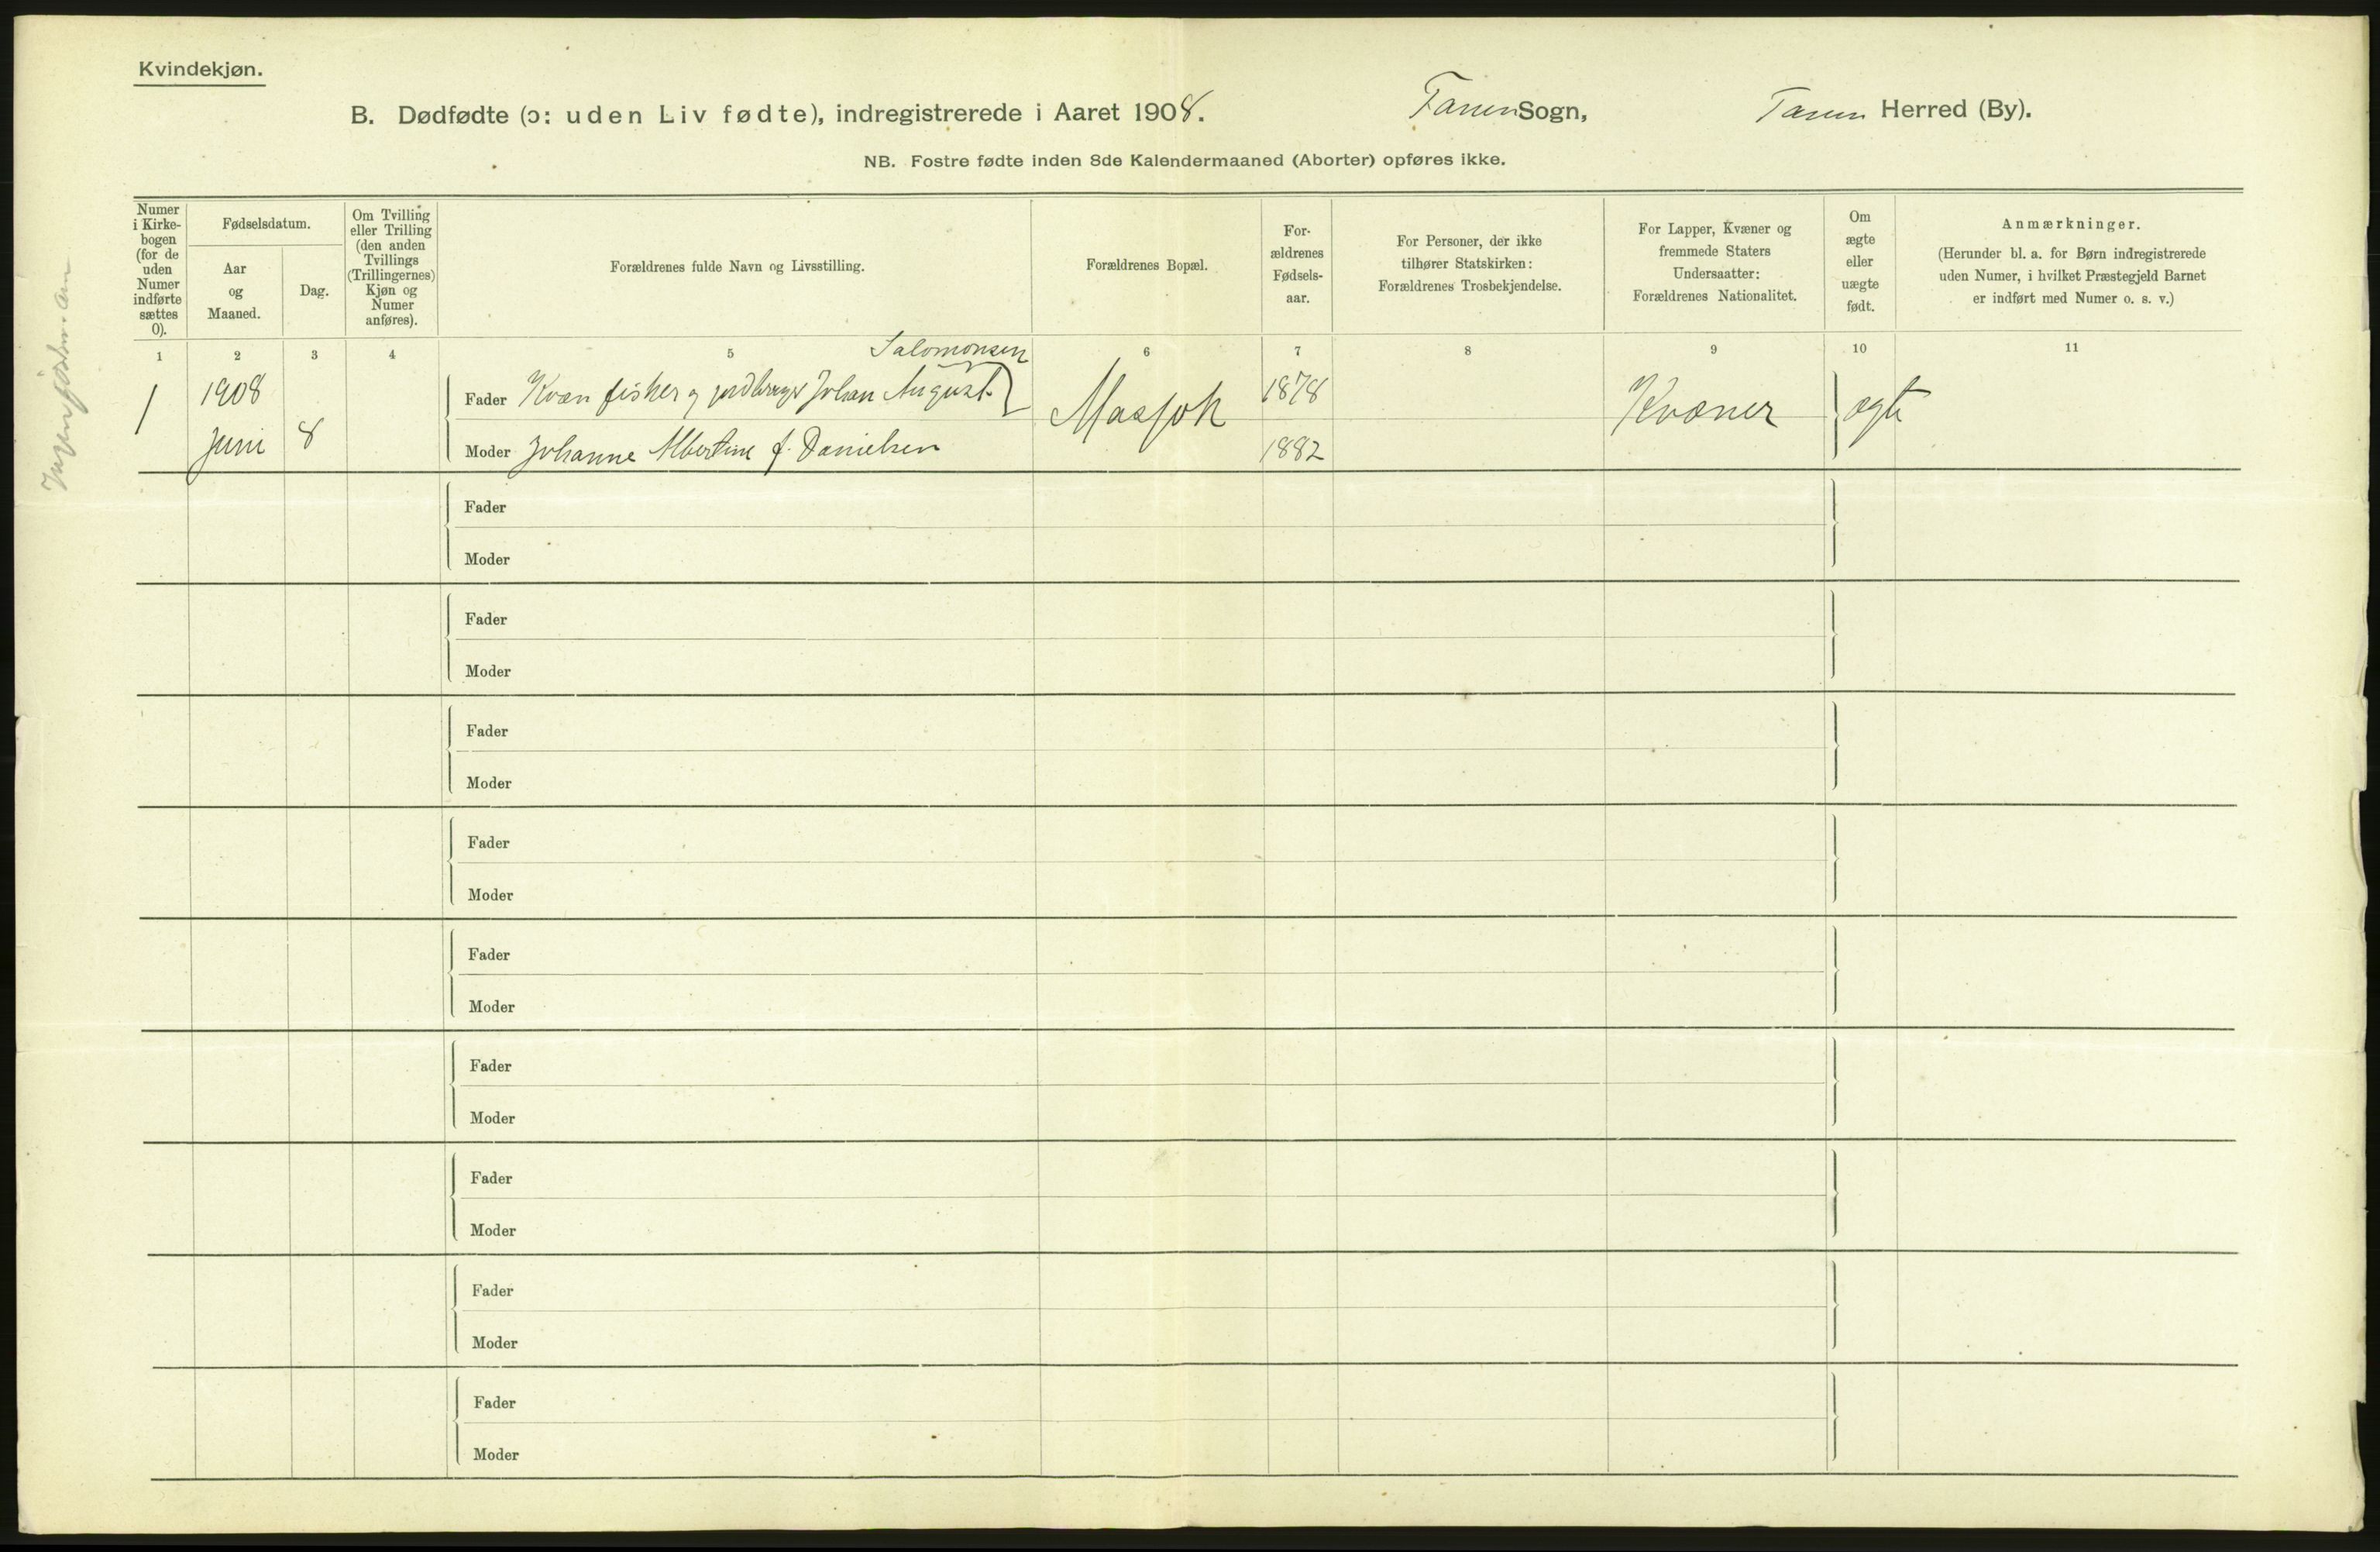 Kvindekjøn.
B. Dødfødte (ɔ: uden Liv fødte), indregistrerede i Aaret 1908. Tanen Sogn, Tanen Herred (By).
NB. Fostre fødte inden 8de Kalendermaaned (Aborter) opføres ikke.
Numer
i Kirke-
bogen
(for de
uden
Numer
indførte
sættes
0).
Fødselsdatum.
Aar
og
Maaned.
Dag.
Om Tvilling
eller Trilling
(den anden
Tvillings
(Trillingernes)
Kjøn og
Numer
anføres).
Forældrenes fulde Navn og Livsstilling.
Forældrenes Bopæl.
For-
ældrenes
Fødsels-
aar.
For Personer, der ikke
tilhører Statskirken:
Forældrenes Trosbekjendelse.
For Lapper, Kvæner og
fremmede Staters
Undersaatter:
Forældrenes Nationalitet.
Om
ægte
eller
uægte
født.
Anmærkninger.
(Herunder bl. a. for Børn indregistrerede
uden Numer, i hvilket Præstegjeld Barnet
er indført med Numer o. s. v.)
1 2 3 4 5 6 7 8 9 10 11
Salomonsen
1 1908 Fader Kvæn fisker og jordbruger Johan August Masjok 1878 Kvæner ægte
Juni 8 Moder Johanne Albertine f. Danielsen 1882
Fader
Moder
Fader
Moder
Fader
Moder
Fader
Moder
Fader
Moder
Fader
Moder
Fader
Moder
Fader
Moder
Fader
Moder